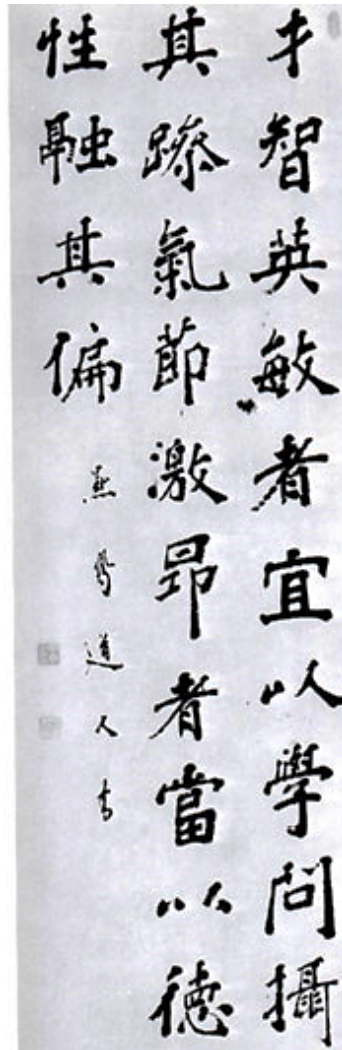 才智英敏者宜以學問攝
其躁氣節激昂者當以德
性融其偏
道人書